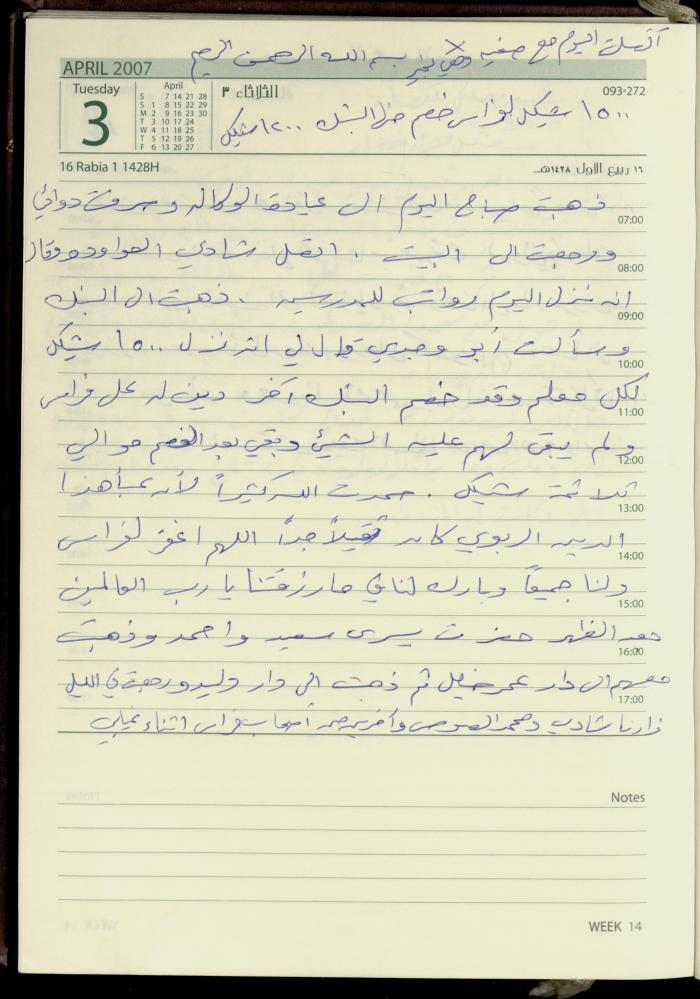 اتصلت اليوم مع صفيه وهي بخير بسم الله الرحمن الرحيم
APRIL 2007
Tuesday
3
April
S 7 14 21 28
S 1 8 15 22 29
M 2 9 16 23 30
T 3 10 17 24
W 4 11 18 25
T 5 12 19 26
F 6 13 20 27
الثلاثاء ٣
093-272
١٥٠٠ شيكل لفراس خصم منها البنك ١٢٠٠ شيكل
16 Rabia 1 1428H
١٦ ربيع الاول ١٤٢٨هـ
ذهبت صباح اليوم الى عيادة الوكاله وصرفت دوائي
07:00
ورجعت الى البيت . اتصل شادي العواوده وقال
08:00
انه نزل اليوم رواتب للمدرسين . ذهبت الى البنك
09:00
وسألت أبو وجدي قال لي انه نزل ١٥٠٠ شيكل
10:00
لكل معلم وقد خصم البنك آخر دين له على فراس
11:00
ولم يبق لهم عليه الشيئ وبقي بعد الخصم حوالي
12:00
ثلاثمئة شيكل . حمدت الله كثيراً لأن عبأ هذا
13:00
الدين الربوي كان ثقيلاً جداً اللهم اغفر لفراس
14:00
ولنا جميعاً وبارك لنا في ما رزقتنا يا رب العالمين
15:00
بعد الظهر حضرت يسرى سعيد واحمد وذهبت
16:00
معهم الى دار عمر ثم ذهبت الى دار وليد ورجعت في الليل
17:00
زارنا شادي ومحمد وآخرين من أصحاب فراس اثناء غيابي
Notes
WEEK 14